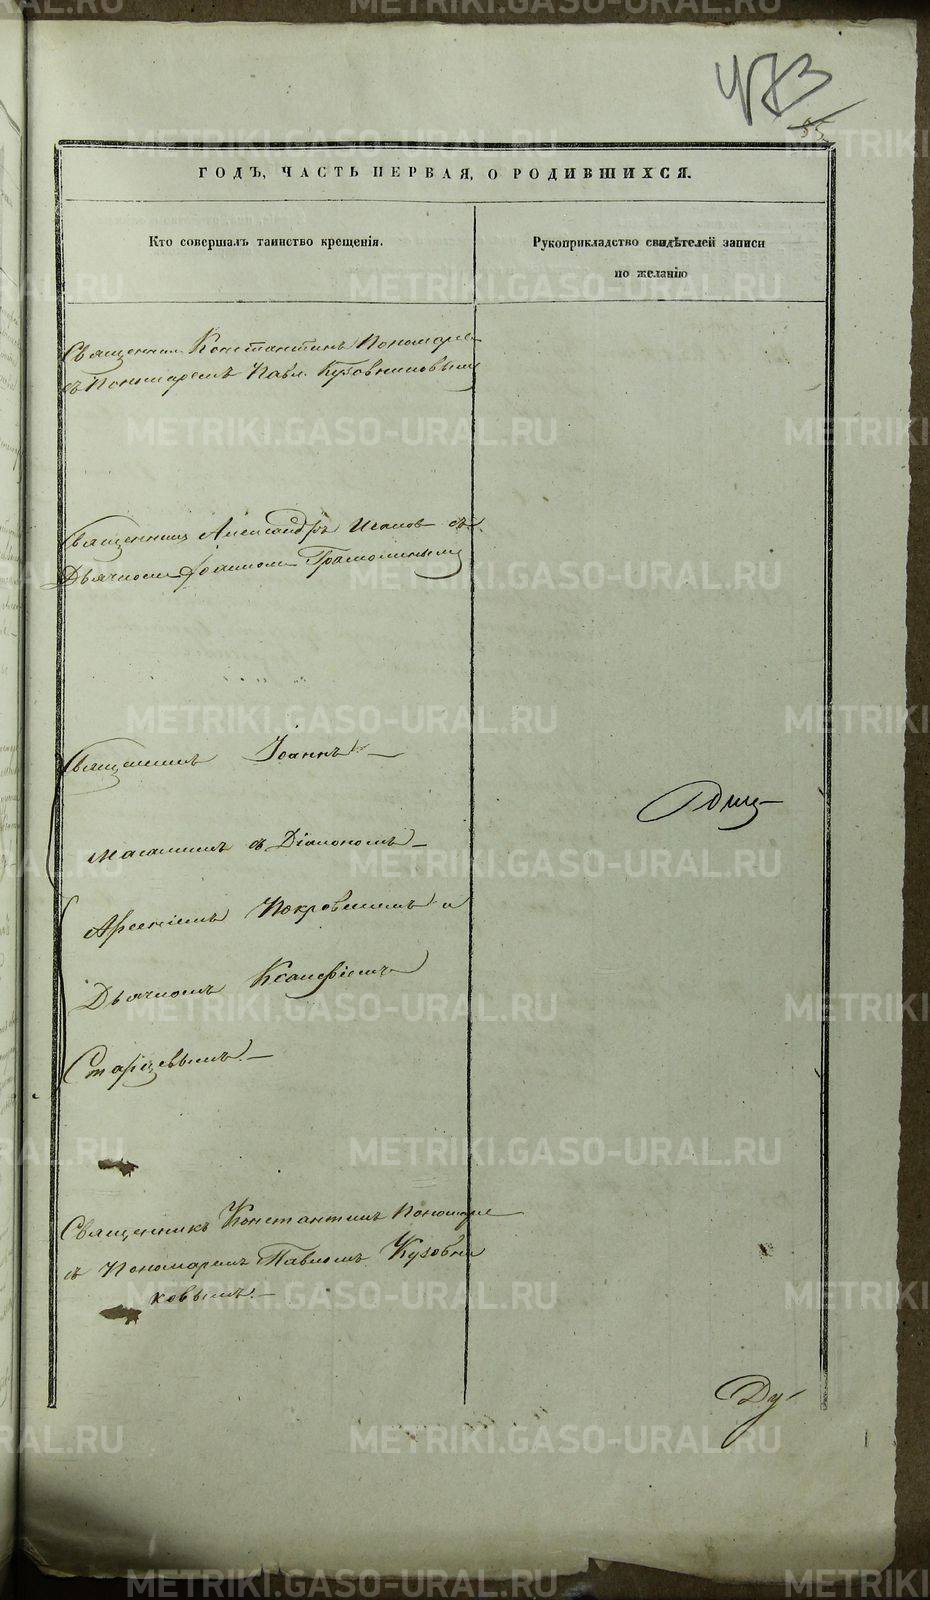 473
55
ГОДЪ, ЧАСТЬ ПЕРВАЯ, О РОДИВШИХСЯ.
Кто совершалъ таинство крещенія.
Рукоприкладство свидѣтелей записи
по желанію
Священник Константинъ Пономаре
съ Пономаремъ Павл. Кузовниковымъ
Священник Александръ Иванов съ
Дьячкомъ Іоанномъ Грамолинымъ
Священникъ Іоаннъ
съ Діакономъ
Арсеніемъ Покровскимъ и
Дьячкомъ
Старцевымъ.
Священникъ Константинъ Пономаре
съ Пономаремъ Павломъ Кузовни
ковымъ.
Ду
METRIKI.GASO-URAL.RU